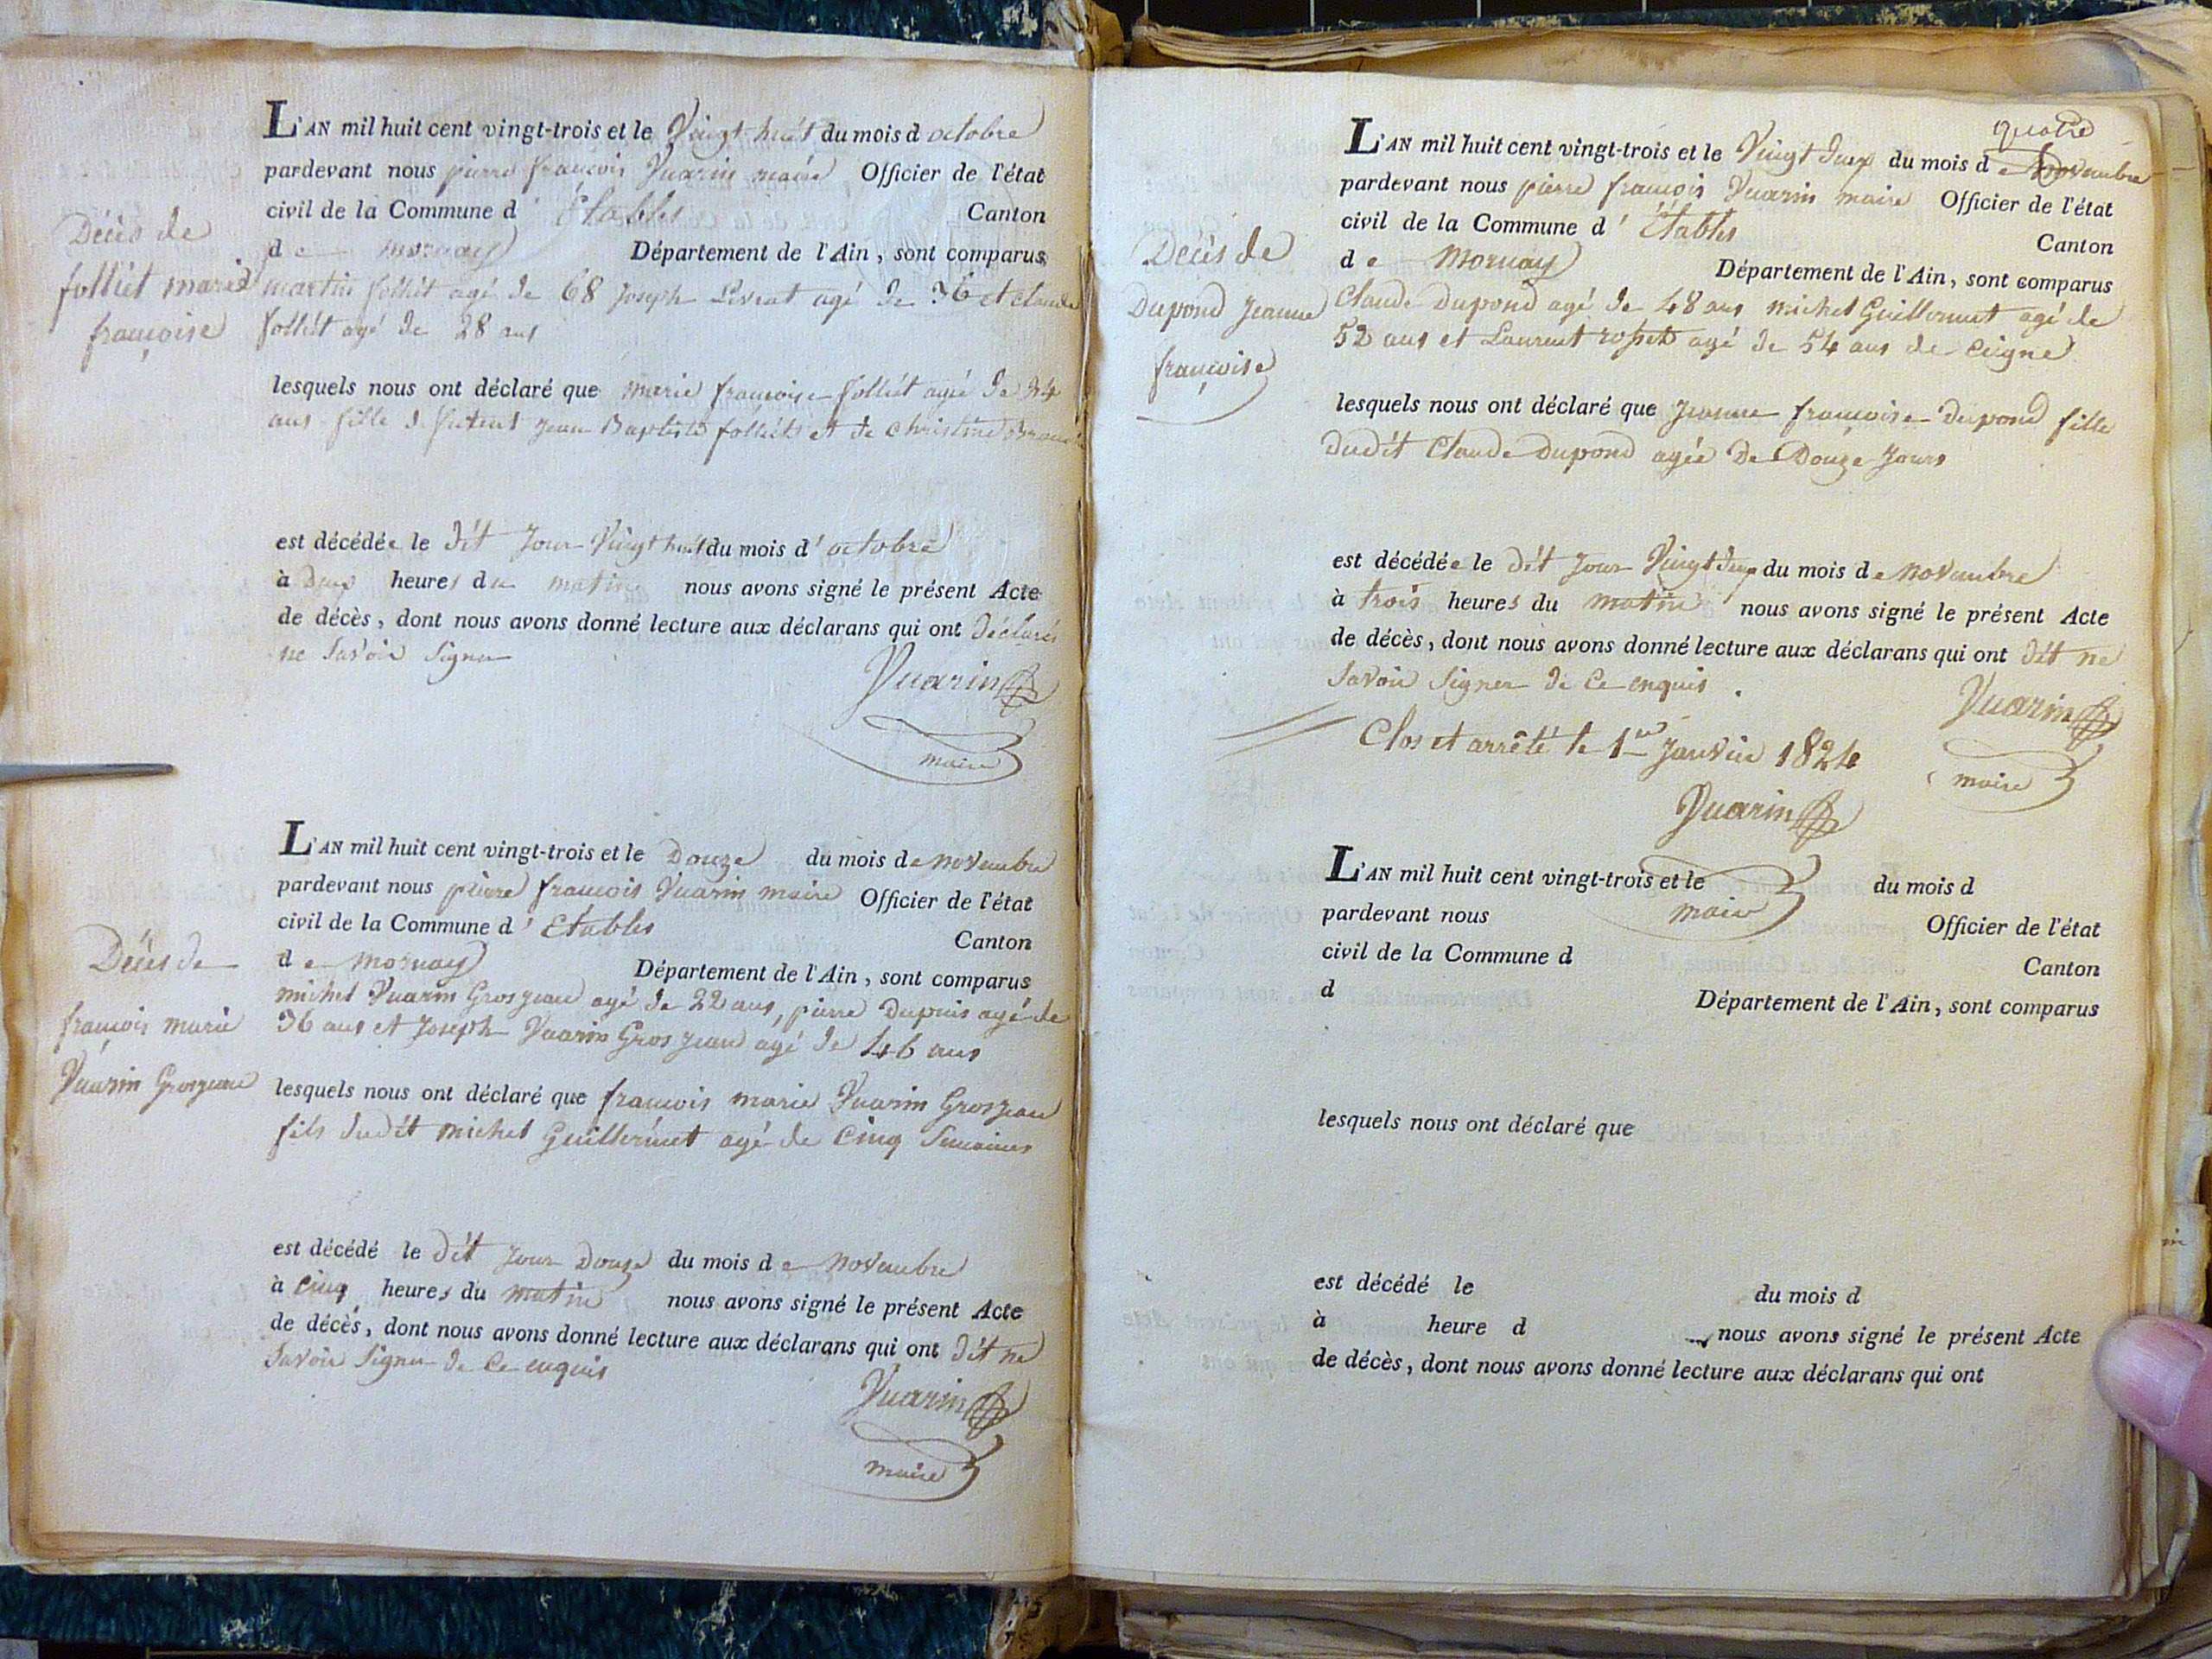 L'AN mil huit cent vingt-trois et le Vingt huit du mois d octobre
pardevant nous pierre françois Vuarin maire Officier de l'état
civil de la Commune d' Étables Canton
de mornay Département de l'Ain, sont comparus
martin folliet agé de 68 Joseph Livrat agé de 36 et claude
folliet agé de 28 ans
Décès de
folliet marie
françoise
lesquels nous ont déclaré que marie françoise folliet agée de 24
ans fille de Jean Baptiste folliet et de christine
est décédée le dit Jour Vingt huit du mois d' octobre
à Deux heures du matin nous avons signé le présent Acte
de décès, dont nous avons donné lecture aux déclarans qui ont Déclarés
ne Savoir Signer
Vuarin
maire
L'AN mil huit cent vingt-trois et le Douze du mois de novembre
pardevant nous pierre françois Vuarin maire Officier de l'état
civil de la Commune d' Étables Canton
de mornay Département de l'Ain, sont comparus
michel Vuarin Grosjean agé de 22 ans, pierre Dupuis agé de
36 ans et Joseph Vuarin Gros jean agé de 46 ans
Décès de
françois marie
Vuarin Grosjean
lesquels nous ont déclaré que françois marie Vuarin Grosjean
fils dudit michel Guillermet agé de Cinq Semaines
est décédé le dit Jour Douze du mois de novembre
à Cinq heures du matin nous avons signé le présent Acte
de décès, dont nous avons donné lecture aux déclarans qui ont dit ne
Savoir Signer de Ce enquis
Vuarin
maire
quatre
L'AN mil huit cent vingt-trois et le Vingt deux du mois de novembre
pardevant nous pierre françois Vuarin maire Officier de l'état
civil de la Commune d' Étables Canton
de Mornay Département de l'Ain, sont comparus
Claude Dupond agé de 48 ans michel Guillermet agé de
52 ans et Laurent rosset agé de 54 ans de Ceigne
Décès de
Dupond Jeanne
françoise
lesquels nous ont déclaré que Jeanne françoise Dupond fille
dudit Claude Dupond agée De Douze Jours
est décédée le dit Jour Vingt deux du mois de novembre
à trois heures du matin nous avons signé le présent Acte
de décès, dont nous avons donné lecture aux déclarans qui ont dit ne
Savoir Signer de Ce enquis.
Vuarin
maire
Clos et arrêté le 1er Janvier 1824
Vuarin
maire
L'AN mil huit cent vingt-trois et le du mois d
pardevant nous Officier de l'état
civil de la Commune d Canton
d Département de l'Ain, sont comparus
lesquels nous ont déclaré que
est décédé le du mois d
à heure d nous avons signé le présent Acte
de décès, dont nous avons donné lecture aux déclarans qui ont